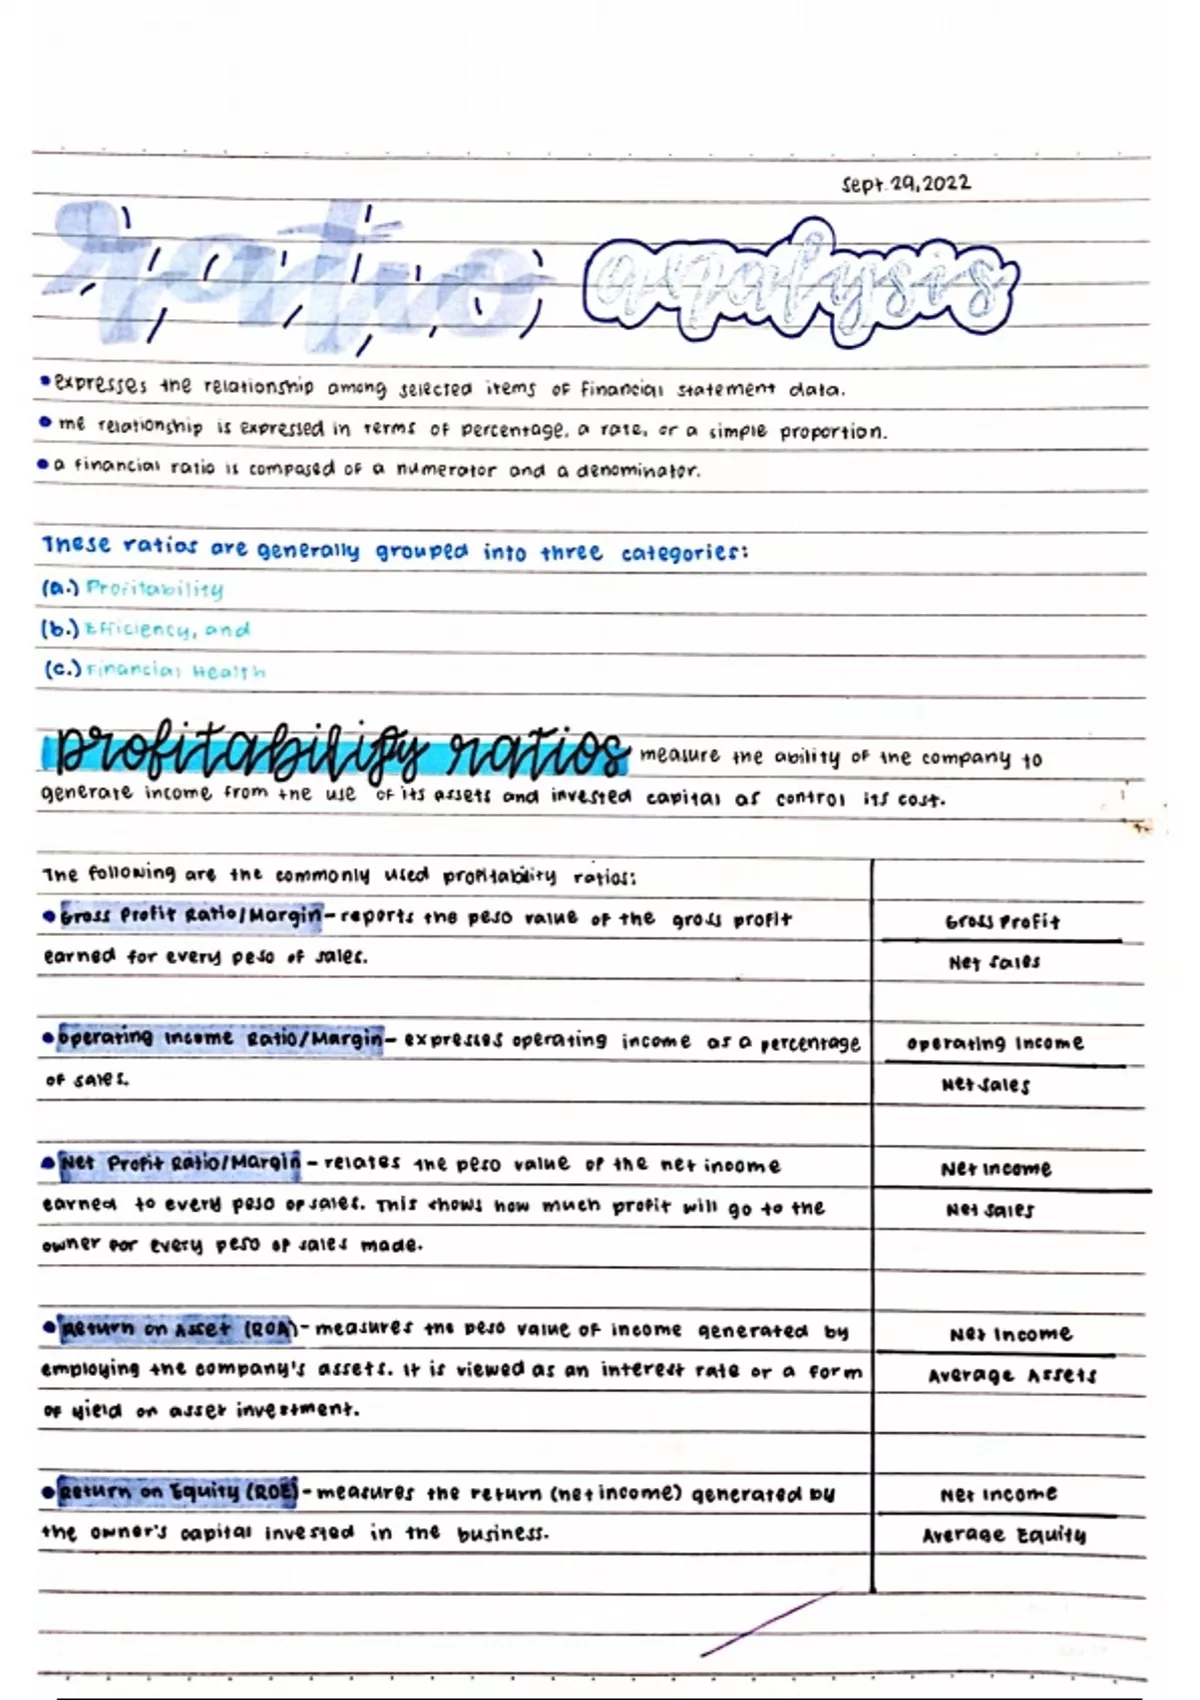 Sept. 29, 2022
ratio analysis
• expresses the relationship among selected items of financial statement data.
• the relationship is expressed in terms of percentage, a rate, or a simple proportion.
• a financial ratio is composed of a numerator and a denominator.
These ratios are generally grouped into three categories:
(a.) Profitability
(b.) Efficiency, and
(c.) Financial Health
profitability ratios measure the ability of the company to
generate income from the use of its assets and invested capital as control its cost.
The following are the commonly used profitability ratios:
• Gross Profit Ratio/Margin - reports the peso value of the gross profit
earned for every peso of sales.
Gross Profit
Net Sales
• Operating Income Ratio/Margin - expresses operating income as a percentage
of sales.
Operating Income
Net Sales
• Net Profit Ratio/Margin - relates the peso value of the net income
earned to every peso of sales. This shows how much profit will go to the
owner for every peso of sales made.
Net Income
Net Sales
• Return on Asset (ROA) - measures the peso value of income generated by
employing the company's assets. It is viewed as an interest rate or a form
of yield on asset investment.
Net Income
Average Assets
• Return on Equity (ROE) - measures the return (net income) generated by
the owner's capital invested in the business.
Net Income
Average Equity